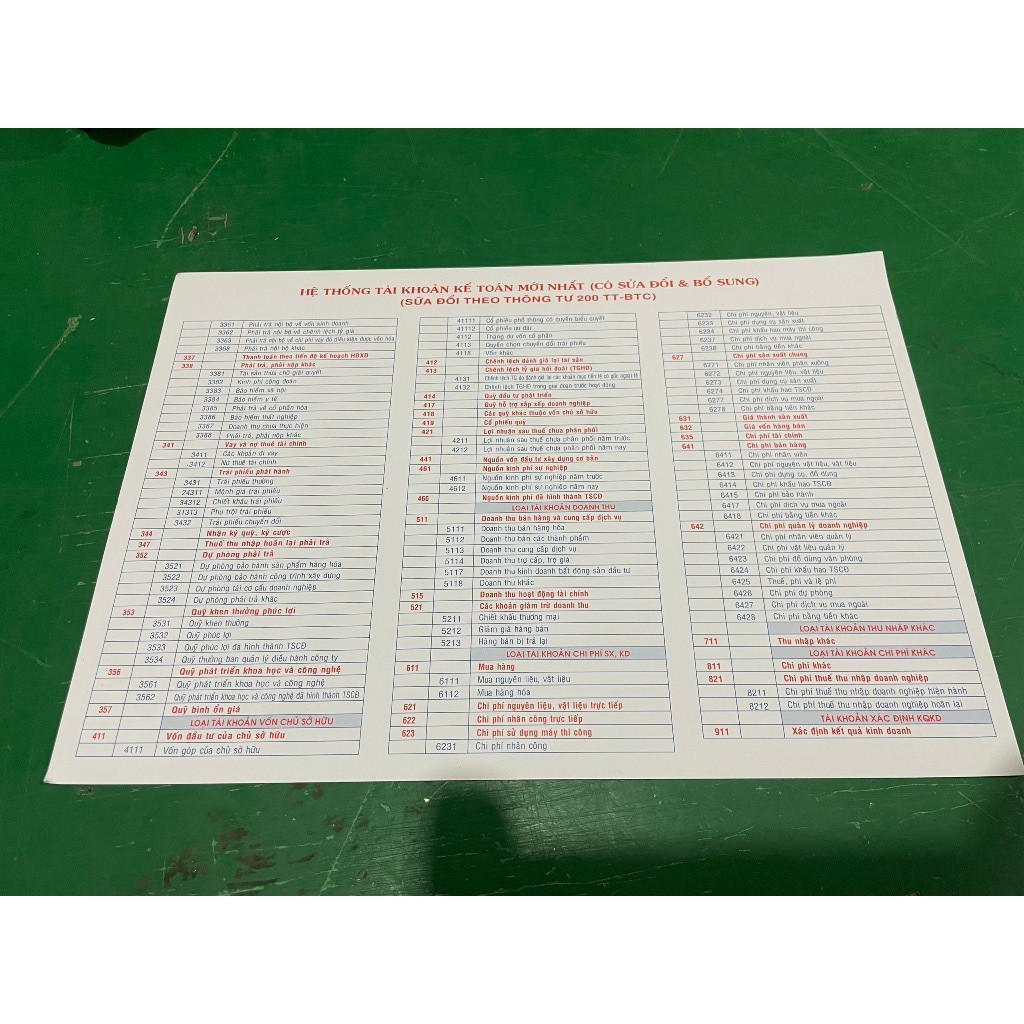 HỆ THỐNG TÀI KHOẢN KẾ TOÁN MỚI NHẤT (CÓ SỬA ĐỔI & BỔ SUNG)
(SỬA ĐỔI THEO THÔNG TƯ 200 TT-BTC)
3361 Phải trả nội bộ về vốn kinh doanh
3362 Phải trả nội bộ về chênh lệch tỷ giá
3363 Phải trả nội bộ về chi phí vay đủ điều kiện được vốn hóa
3368 Phải trả nội bộ khác
337 Thanh toán theo tiến độ kế hoạch HĐXD
338 Phải trả, phải nộp khác
3381 Tài sản thừa chờ giải quyết
3382 Kinh phí công đoàn
3383 Bảo hiểm xã hội
3384 Bảo hiểm y tế
3385 Phải trả về cổ phần hóa
3386 Bảo hiểm thất nghiệp
3387 Doanh thu chưa thực hiện
3388 Phải trả, phải nộp khác
341 Vay và nợ thuê tài chính
3411 Các khoản đi vay
3412 Nợ thuê tài chính
343 Trái phiếu phát hành
3431 Trái phiếu thường
24311 Mệnh giá trái phiếu
34312 Chiết khấu trái phiếu
31313 Phụ trội trái phiếu
3432 Trái phiếu chuyển đổi
344 Nhận ký quỹ, ký cược
347 Thuế thu nhập hoãn lại phải trả
352 Dự phòng phải trả
3521 Dự phòng bảo hành sản phẩm hàng hóa
3522 Dự phòng bảo hành công trình xây dựng
3523 Dự phòng tái cơ cấu doanh nghiệp
3524 Dự phòng phải trả khác
353 Quỹ khen thưởng phúc lợi
3531 Quỹ khen thưởng
3532 Quỹ phúc lợi
3533 Quỹ phúc lợi đã hình thành TSCĐ
3534 Quỹ thưởng ban quản lý điều hành công ty
356 Quỹ phát triển khoa học và công nghệ
3561 Quỹ phát triển khoa học và công nghệ
3562 Quỹ phát triển khoa học và công nghệ đã hình thành TSCĐ
357 Quỹ bình ổn giá
LOẠI TÀI KHOẢN VỐN CHỦ SỞ HỮU
411 Vốn đầu tư của chủ sở hữu
4111 Vốn góp của chủ sở hữu
41111 Cổ phiếu phổ thông có quyền biểu quyết
41112 Cổ phiếu ưu đãi
4112 Thặng dư vốn cổ phần
4113 Quyền chọn chuyển đổi trái phiếu
4118 Vốn khác
412 Chênh lệch đánh giá lại tài sản
413 Chênh lệch tỷ giá hối đoái (TGHĐ)
4131 Chênh lệch TG do đánh giá lại các khoản mục tiền tệ có gốc ngoại tệ
4132 Chênh lệch TGHĐ trong giai đoạn trước hoạt động
414 Quỹ đầu tư phát triển
417 Quỹ hỗ trợ sắp xếp doanh nghiệp
418 Các quỹ khác thuộc vốn chủ sở hữu
419 Cổ phiếu quỹ
421 Lợi nhuận sau thuế chưa phân phối
4211 Lợi nhuận sau thuế chưa phân phối năm trước
4212 Lợi nhuận sau thuế chưa phân phối năm nay
441 Nguồn vốn đầu tư xây dựng cơ bản
461 Nguồn kinh phí sự nghiệp
4611 Nguồn kinh phí sự nghiệp năm trước
4612 Nguồn kinh phí sự nghiệp năm nay
466 Nguồn kinh phí đã hình thành TSCĐ
LOẠI TÀI KHOẢN DOANH THU
511 Doanh thu bán hàng và cung cấp dịch vụ
5111 Doanh thu bán hàng hóa
5112 Doanh thu bán các thành phẩm
5113 Doanh thu cung cấp dịch vụ
5114 Doanh thu trợ cấp, trợ giá
5117 Doanh thu kinh doanh bất động sản đầu tư
5118 Doanh thu khác
515 Doanh thu hoạt động tài chính
521 Các khoản giảm trừ doanh thu
5211 Chiết khấu thương mại
5212 Giảm giá hàng bán
5213 Hàng bán bị trả lại
LOẠI TÀI KHOẢN CHI PHÍ SX, KD
611 Mua hàng
6111 Mua nguyên liệu, vật liệu
6112 Mua hàng hóa
621 Chi phí nguyên liệu, vật liệu trực tiếp
622 Chi phí nhân công trực tiếp
623 Chi phí sử dụng máy thi công
6231 Chi phí nhân công
6232 Chi phí nguyên, vật liệu
6233 Chi phí dụng cụ sản xuất
6234 Chi phí khấu hao máy thi công
6237 Chi phí dịch vụ mua ngoài
6238 Chi phí bằng tiền khác
627 Chi phí sản xuất chung
6271 Chi phí nhân viên phân xưởng
6272 Chi phí nguyên liệu, vật liệu
6273 Chi phí dụng cụ sản xuất
6274 Chi phí khấu hao TSCĐ
6277 Chi phí dịch vụ mua ngoài
6278 Chi phí bằng tiền khác
631 Giá thành sản xuất
632 Giá vốn hàng bán
635 Chi phí tài chính
641 Chi phí bán hàng
6411 Chi phí nhân viên
6412 Chi phí nguyên vật liệu, vật liệu
6413 Chi phí dụng cụ, đồ dùng
6414 Chi phí khấu hao TSCĐ
6415 Chi phí bảo hành
6417 Chi phí dịch vụ mua ngoài
6418 Chi phí bằng tiền khác
642 Chi phí quản lý doanh nghiệp
6421 Chi phí nhân viên quản lý
6422 Chi phí vật liệu quản lý
6423 Chi phí đồ dùng văn phòng
6424 Chi phí khấu hao TSCĐ
6425 Thuế, phí và lệ phí
6426 Chi phí dự phòng
6427 Chi phí dịch vụ mua ngoài
6428 Chi phí bằng tiền khác
LOẠI TÀI KHOẢN THU NHẬP KHÁC
711 Thu nhập khác
LOẠI TÀI KHOẢN CHI PHÍ KHÁC
811 Chi phí khác
821 Chi phí thuế thu nhập doanh nghiệp
8211 Chi phí thuế thu nhập doanh nghiệp hiện hành
8212 Chi phí thuế thu nhập doanh nghiệp hoãn lại
TÀI KHOẢN XÁC ĐỊNH KQKD
911 Xác định kết quả kinh doanh